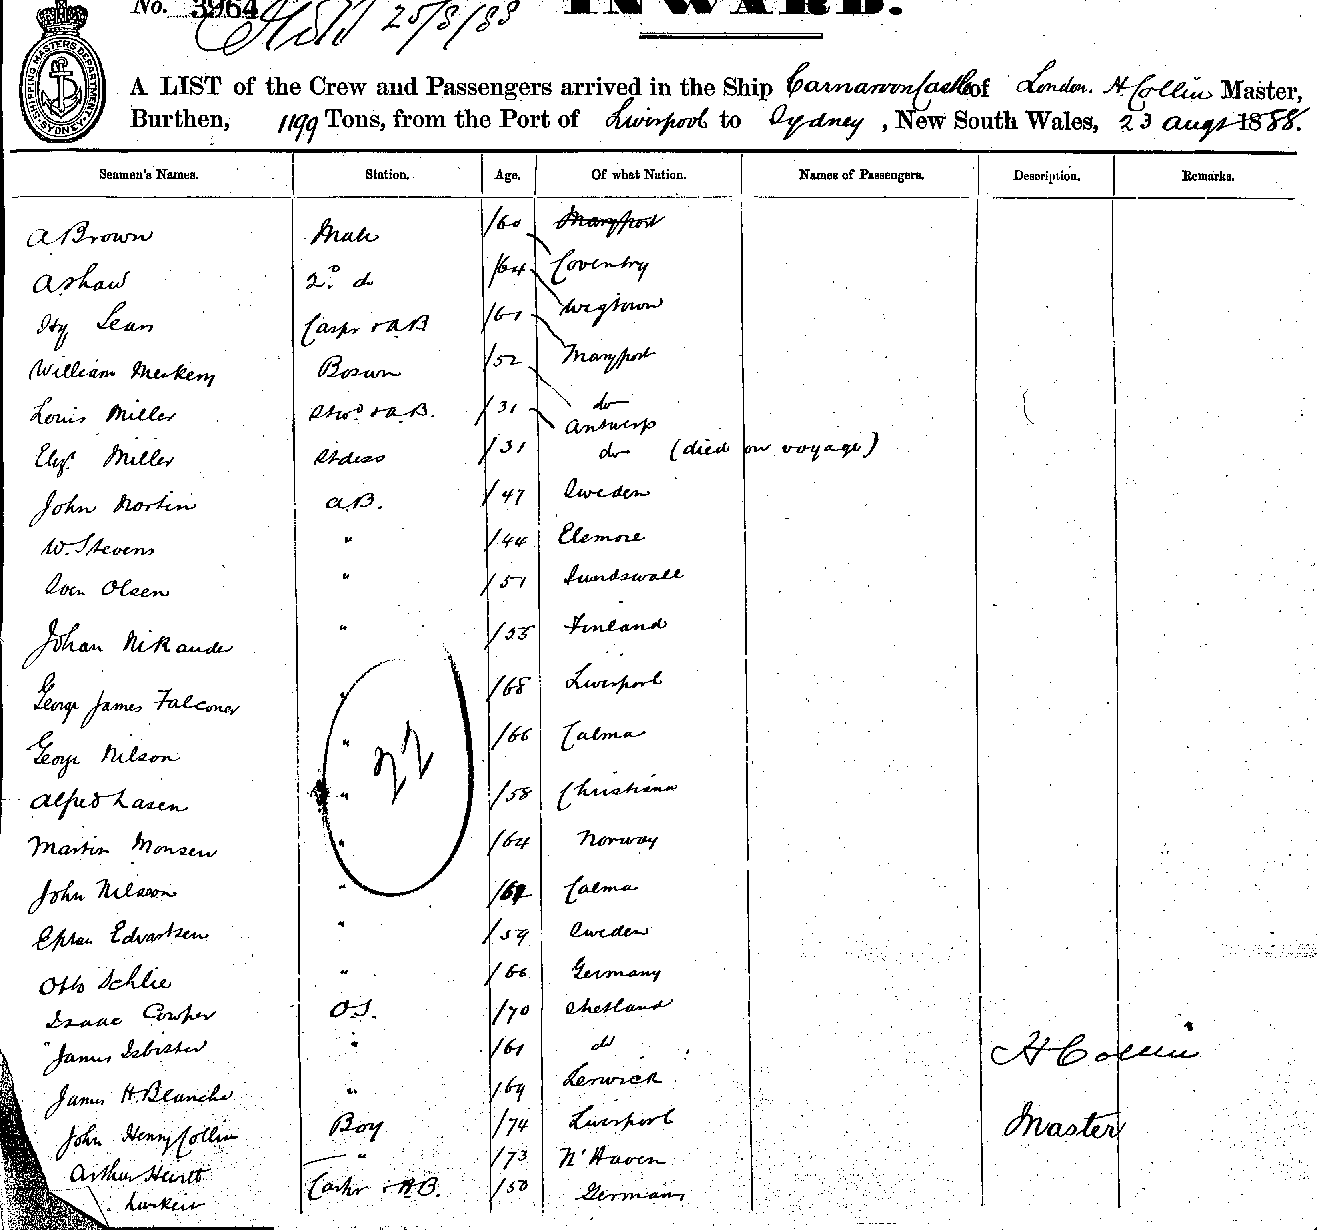 No. 3964 25/8/88
INWARD.
SHIPPING MASTERS DEPARTMENT SYDNEY
A LIST of the Crew and Passengers arrived in the Ship Carnarvon Castle of London. H Collin Master,
Burthen, 1199 Tons, from the Port of Liverpool to Sydney, New South Wales, 23 Augt 1888.
Seamen's Names. Station. Age. Of what Nation. Names of Passengers. Description. Remarks.
A Brown Mate /60 Maryport
A Shaw 2.o do /64 Coventry
Hy Lean Carpr & A.B /61 Wigtown
William Bosun /52 Maryport
Louis Miller Stwd & A.B. /31 do
Antwerp
Eliz. Miller Stdess /31 do (died on voyage)
John Mortin A.B. /47 Sweden
W. Stevens " /44 Elsmore
Sven Olsen " /51 Sundswall
Johan Nikander " /55 Finland
George James Falconer " /68 Liverpool
George Nilson " /66 Calma
Alfred Lasen " /58 Christiana
22
Martin Monsen " /64 Norway
John Nilsson " Calma
Edvartsen " /59 Sweden
Otto Schlie " /66 Germany
Isaac Cowper O.S. /70 Shetland
James Isbister " /61 do
H Collin
James H. Blanche " /69 Lerwick
John Henry Collin Boy /74 Liverpool
Master
Arthur " /73 N'Haven
Carpr & A.B. /50 Germany